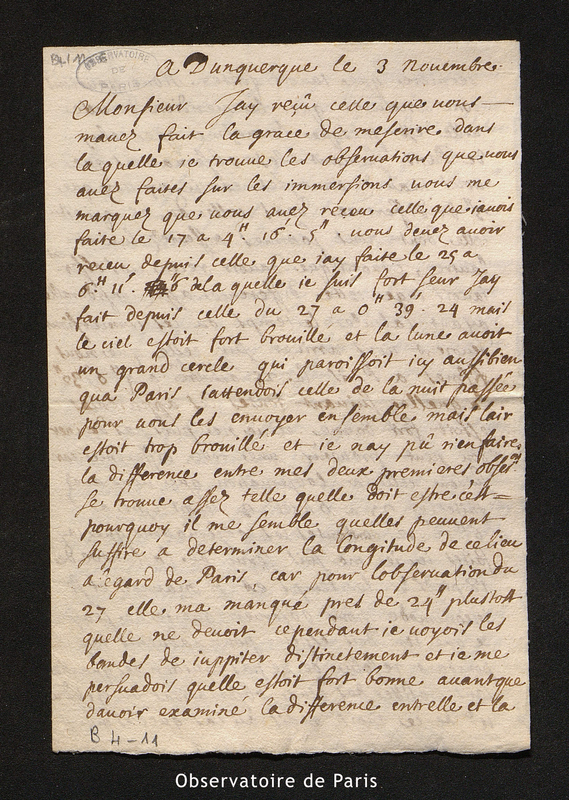 B4-11
OBSERVATOIRE DE PARIS
A Dunquerque le 3 novembre.
Monsieur Jay reçû celle que vous
mavez fait la grace de mescrire dans
la quelle ie trouve les observations que vous
avez faites sur les immersions vous me
marquez que vous avez receu celle que iavois
faite le 17 a 4.H 16'. 5". vous devez avoir
receu depuis celle que iay faite le 25 a
6.H 11'. 6" de la quelle ie suis fort seur Jay
fait depuis celle du 27 a 0H 39'. 24 mais
le ciel estoit fort brouillé et la lune avoit
un grand cercle qui paroissoit icy aussibien
qua Paris iattendois celle de la nuit passée
pour vous les envoyer ensemble mais lair
estoit trop brouillé et ie nay pû rien faire.
la difference entre mes deux premieres obseron
se trouve assez telle quelle doit estre cest=
pourquoy il me semble quelles peuvent
suffire a determiner la longitude de ce lieu
a legard de Paris, car pour lobservation du
27 elle ma manqué pres de 24" plustost
quelle ne devoit cependant ie voyois les
bandes de iuppiter distinctement et ie me
persuadois quelle estoit fort bonne avant que
davoir examiné la difference entrelle et la
B 4-11
Observatoire de Paris